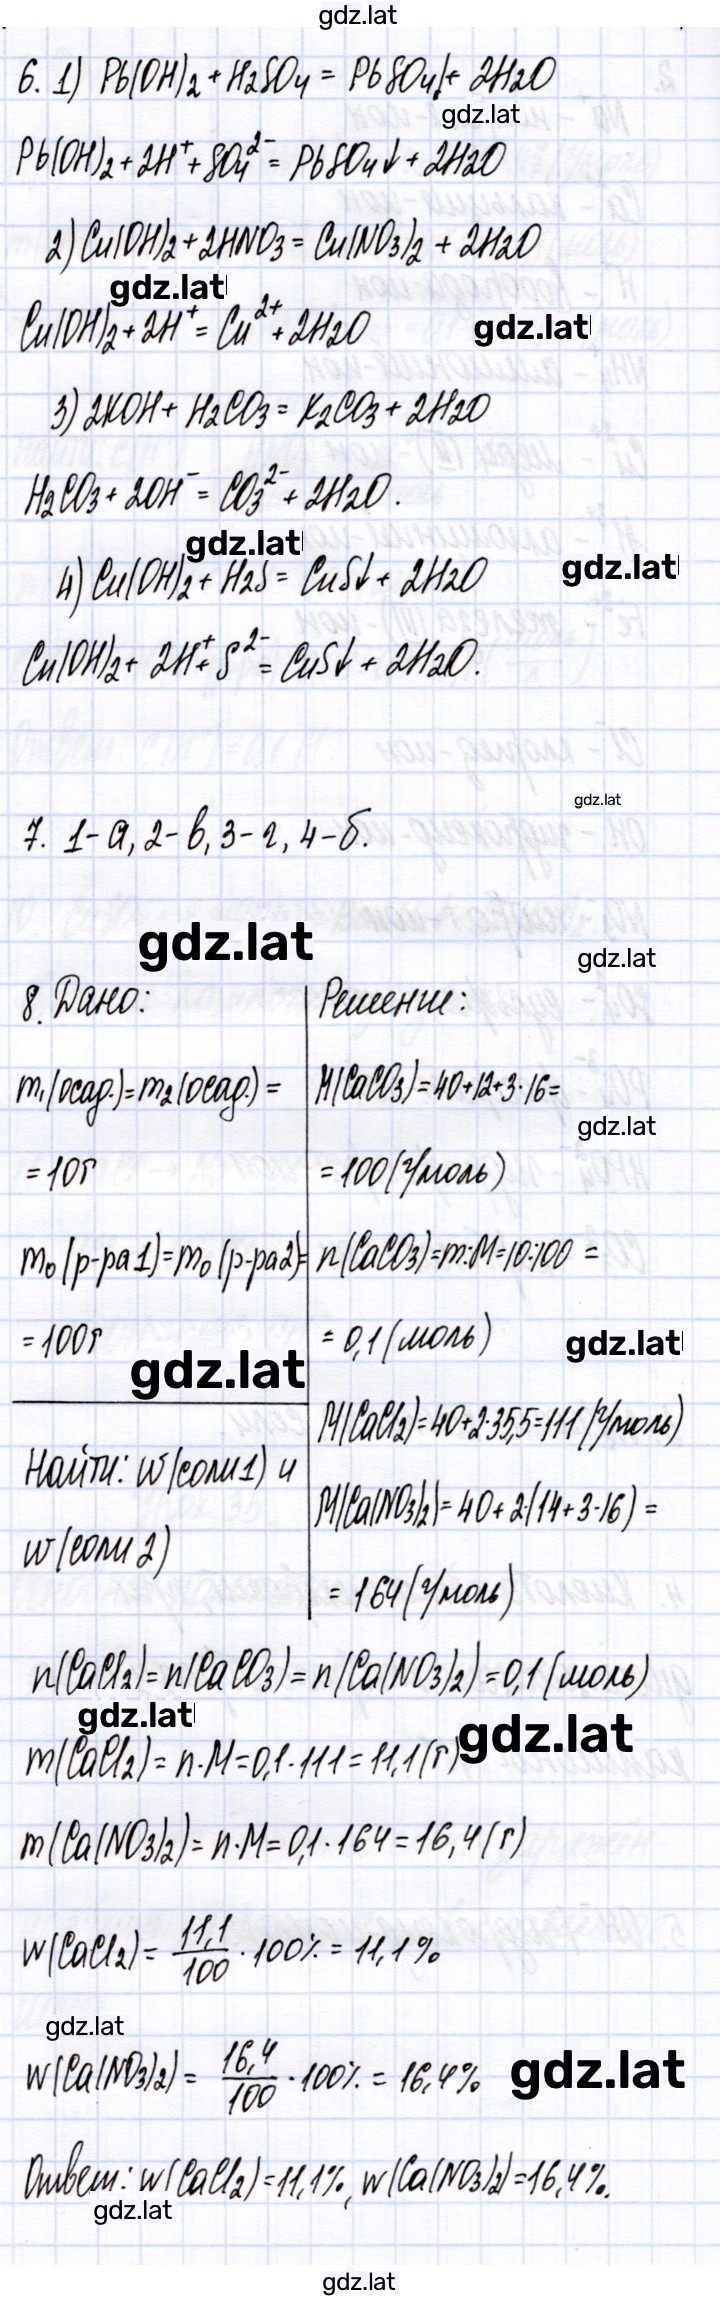 gdz.lat
6. 1) Pb(OH)2 + H2SO4 = PbSO4↓ + 2H2O
gdz.lat
Pb(OH)2 + 2H⁺ + SO4²⁻ = PbSO4↓ + 2H2O
2) Cu(OH)2 + 2HNO3 = Cu(NO3)2 + 2H2O
gdz.lat
Cu(OH)2 + 2H⁺ = Cu²⁺ + 2H2O
gdz.lat
3) 2KOH + H2CO3 = K2CO3 + 2H2O
H2CO3 + 2OH⁻ = CO3²⁻ + 2H2O.
gdz.lat
gdz.lat
4) Cu(OH)2 + H2S = CuS↓ + 2H2O
Cu(OH)2 + 2H⁺ + S²⁻ = CuS↓ + 2H2O.
gdz.lat
7. 1-а, 2-в, 3-г, 4-б.
gdz.lat
gdz.lat
8. Дано:
m1(осад.) = m2(осад.) =
= 10г
m0(р-ра1) = m0(р-ра2) =
= 100г
gdz.lat
Найти: w(соли1) и
w(соли 2)
Решение:
M(CaCO3) = 40+12+3·16 =
gdz.lat
= 100(г/моль)
n(CaCO3) = m:M = 10:100 =
= 0,1(моль)
gdz.lat
M(CaCl2) = 40+2·35,5 = 111(г/моль)
M(Ca(NO3)2) = 40+2·(14+3·16) =
= 164(г/моль)
n(CaCl2) = n(CaCO3) = n(Ca(NO3)2) = 0,1(моль)
gdz.lat
gdz.lat
m(CaCl2) = n·M = 0,1·111 = 11,1(г)
m(Ca(NO3)2) = n·M = 0,1·164 = 16,4(г)
w(CaCl2) = 11,1/100 · 100% = 11,1%
gdz.lat
w(Ca(NO3)2) = 16,4/100 · 100% = 16,4%
gdz.lat
Ответ: w(CaCl2) = 11,1%, w(Ca(NO3)2) = 16,4%.
gdz.lat
gdz.lat